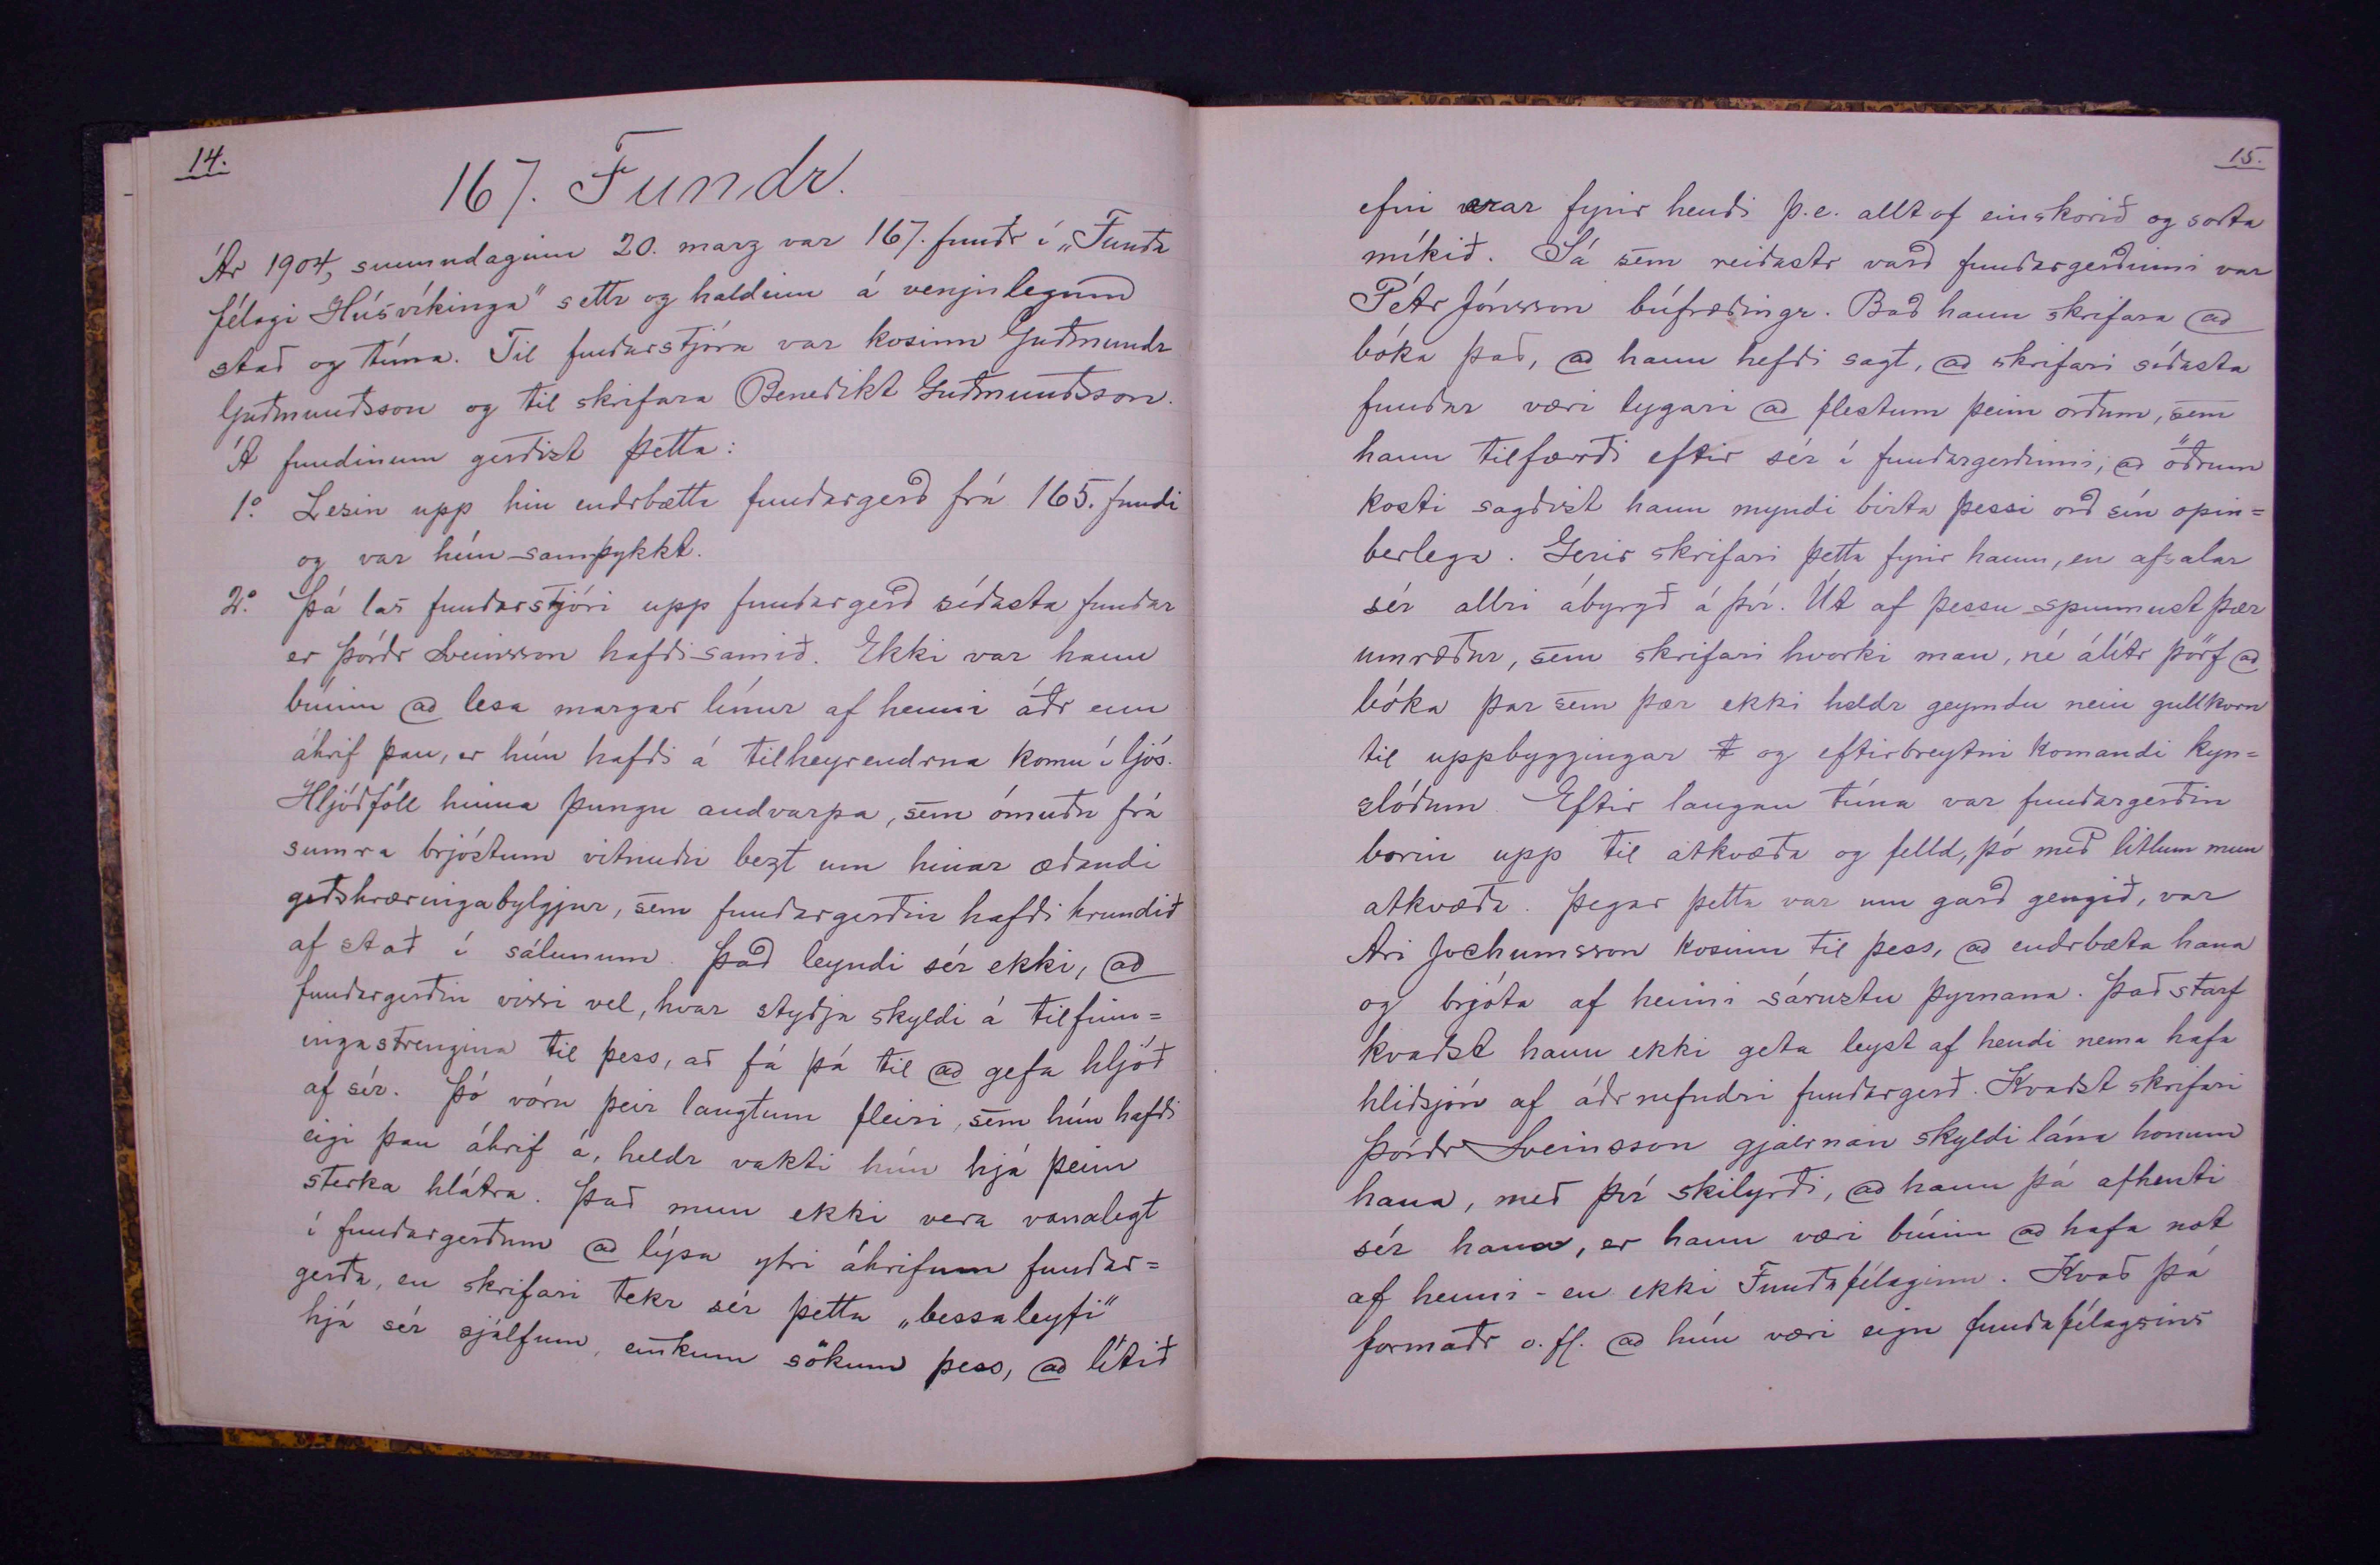 14.
167. Fundr.
Ár 1904, sunnudaginn 20. marz var 167. fundr í „Funda
félagi Húsvíkinga" settr og haldinn á venjulegum
stað og tíma. Til fundarstjóra var kosinn Guðmundr
Guðmundsson og til skrifara Benedikt Guðmundsson.
Á fundinum gerðist þetta:
1.° Lesin upp hin endrbætta fundargerð frá 165. fundi
og var hún samþykkt.
2.° Þá las fundarstjóri upp fundargerð síðasta fundar
er Þórðr Sveinsson hafði samið. Ekki var hann
búinn að lesa margar línur af henni áðr enn
áhrif þau, er hún hafði á tilheyrendrna komu í ljós.
Hljóðföll hinna þungu andvarpa, sem ómuðu frá
sumra brjóstum vitnuðu bezt um hinar æðandi
geðshræringabylgjur, sem fundargerðin hafði hrundið
af stað í sálunum. Það leyndi sér ekki, að
fundargerðin vissi vel, hvar styðja skyldi á tilfinn=
ingastrengina til þess, að fá þá til að gefa hljóð
af sér. Þó vóru þeir langtum fleiri, sem hún hafði
eigi þau áhrif á, heldr vakti hún hjá þeim
sterka hlátra. Það mun ekki vera vanalegt
í fundargerðum að lýsa ytri áhrifum fundar=
gerða, en skrifari tekr sér þetta „bessaleyfi"
hjá sér sjálfum, einkum sökum þess, að lítið
15.
efni var fyrir hendi þ.e. allt of einskorið og sorta
mikið. Sá sem reiðastr varð fundargerðinni var
Pétr Jónsson búfræðingr. Bað hann skrifara að
bóka það, að hann hefði sagt, að skrifari síðasta
fundar væri lygari að flestum þeim orðum, sem
hann tilfærði eftir sér í fundargerðinni, að öðrum
kosti sagðist hann myndi birta þessi orð sín opin=
berlega. Gerir skrifari þetta fyrir hann, en afsalar
sér allri ábyrgð á því. Út af þessu spunnust þær
umræður, sem skrifari hvorki man, né álítr þörf að
bóka þar sem þær ekki heldr geymdu nein gullkorn
til uppbyggingar og eftirbreytni komandi kyn=
slóðum. Eftir langan tíma var fundargerðin
borin upp til atkvæða og felld, þó með litlum mun
atkvæða. Þegar þetta var um garð gengið, var
Ari Jochumsson kosinn til þess, að endrbæta hana
og brjóta af henni sárustu þyrnana. Það starf
kvaðst hann ekki geta leyst af hendi nema hafa
hliðsjón af áðrnefndri fundargerð. Kvaðst skrifari
Þórðr Sveinsson gjarnan skyldi lána honum
hana, með því skilyrði, að hann þá afhenti
sér hana, er hann væri búinn að hafa not
af henni - en ekki Fundafélaginu. Kvað þá
formaðr o. fl. að hún væri eign fundafélagsins